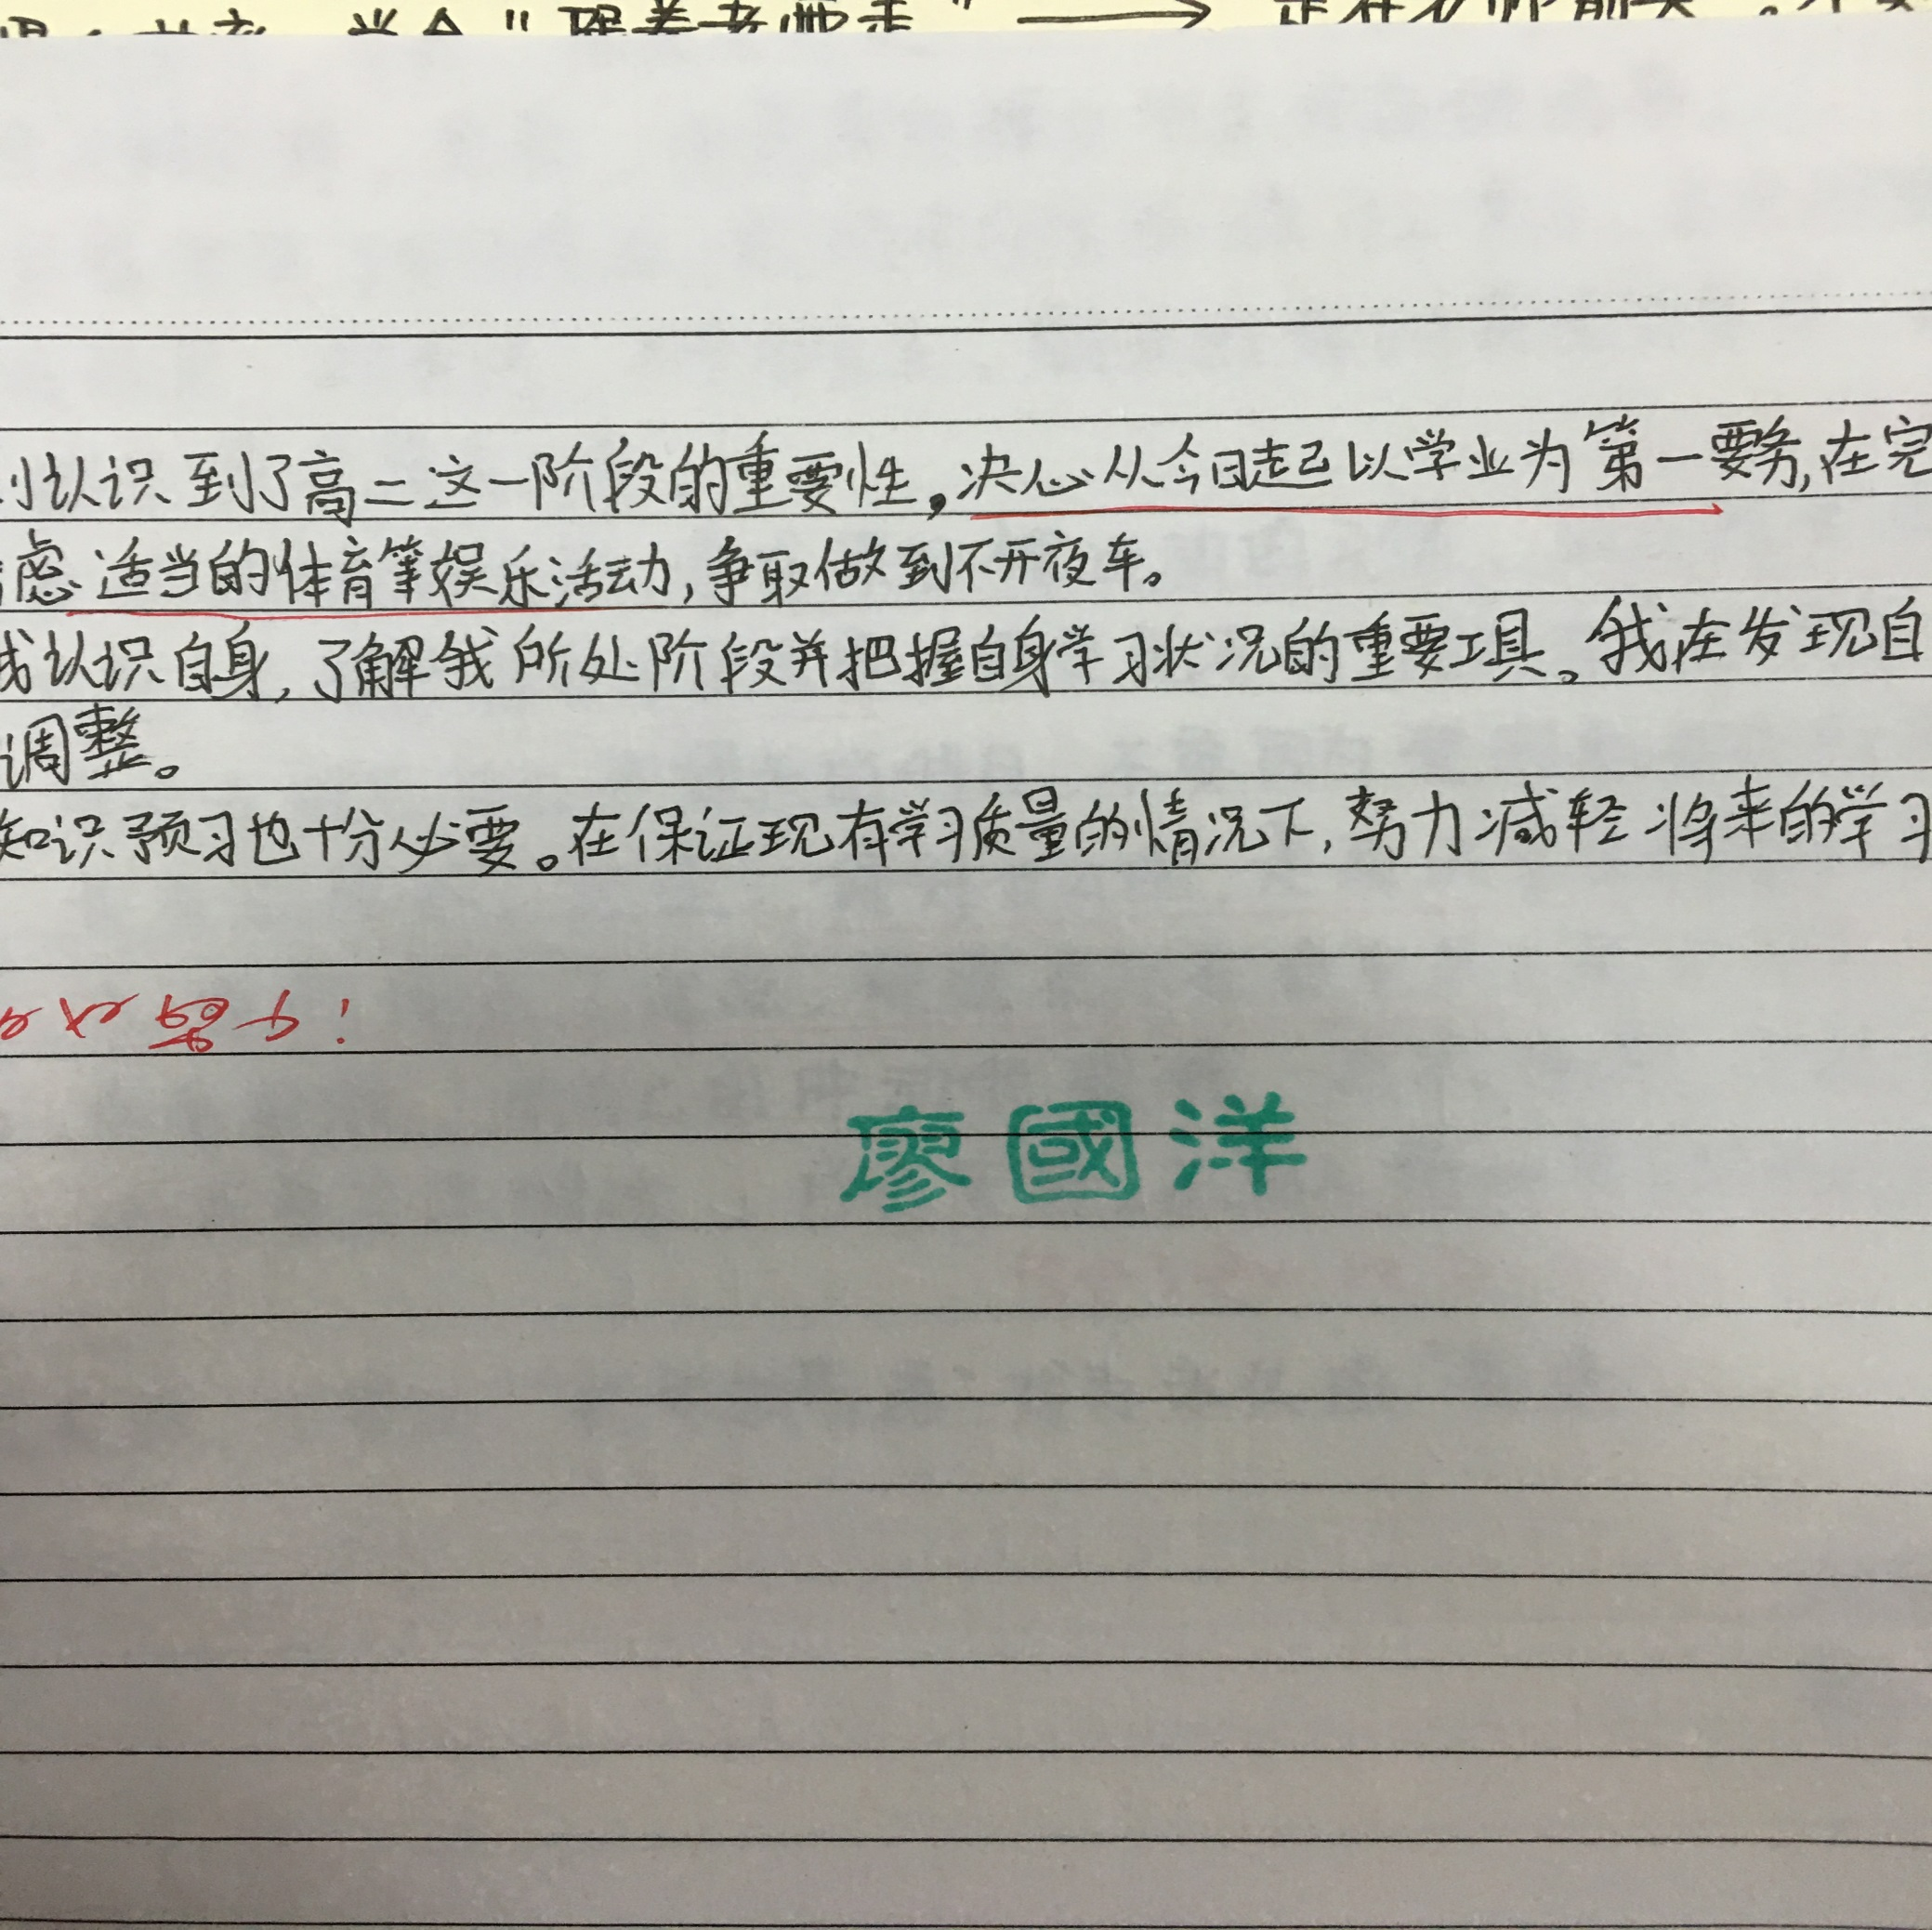 学会“跟着老师走” → 走在老师前头。
认识到了高二这一阶段的重要性，决心从今日起已以学业为第一要务，在完
虑适当的体育等娱乐活动，争取做到不开夜车。
我认识自身，了解我所处阶段并把握自身学习状况的重要工具。我在发现自
调整。
知识预习也十分必要。在保证现有学习质量的情况下，努力减轻将来的学习
廖國洋